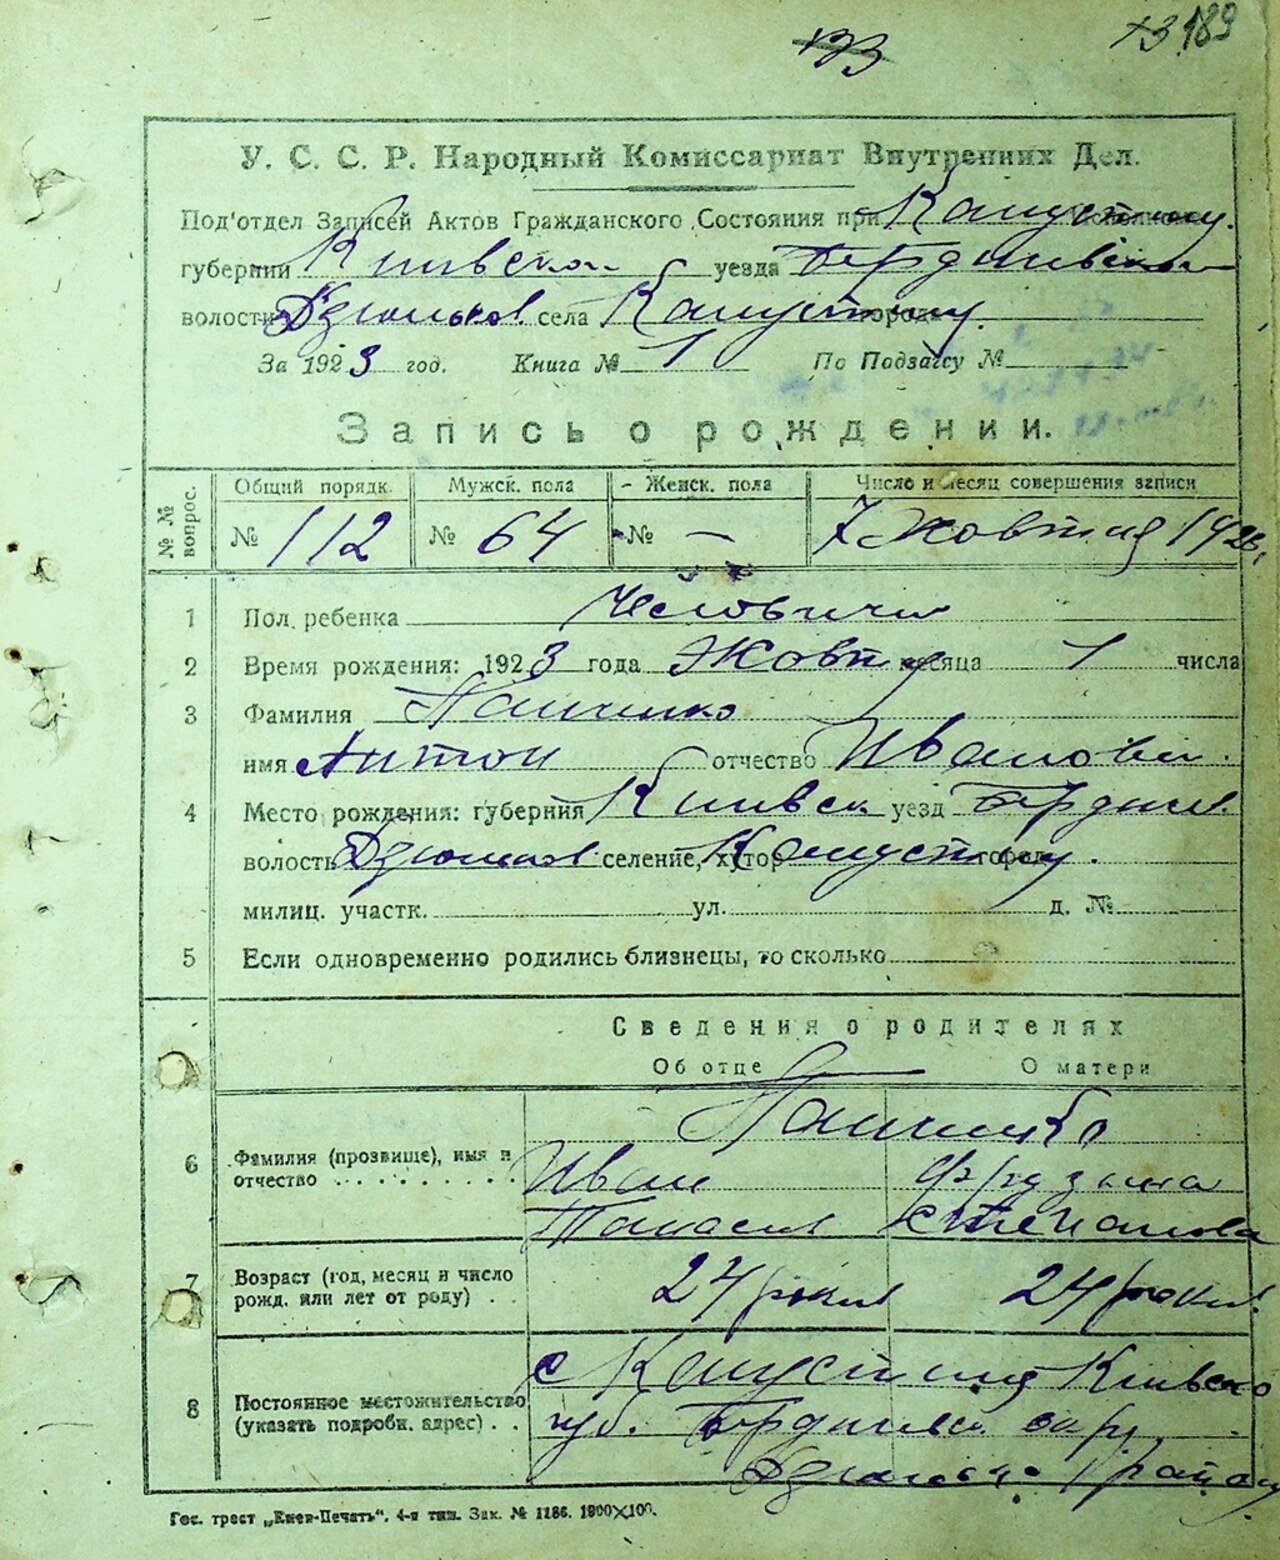 173
73 189
У. С. С. Р. Народный Комиссариат Внутренних Дел.
Под'отдел Записей Актов Гражданского Состояния при Капустину.
губернии Киивской уезда Бердичівск
волости Дзюньков. села Капустину. город
За 1923 год. Книга № 1 По Подзагсу №
Запись о рождении.
№ № вопрос. Общий порядк. Мужск. пола Женск. пола Число и месяц совершения записи
№ 112 № 64 № — 7 Жовтня 1923
1 Пол ребенка Чоловичи
2 Время рождения: 1923 года Жовтня месяца 1 числа
3 Фамилия Панченко
имя Антон отчество Иванович.
4 Место рождения: губерния Киивск уезд Бердичев.
волость Дзюньков селение, хутор Капустину. город
милиц. участк. ул. д. №
5 Если одновременно родились близнецы, то сколько
Сведения о родителях
Об отце О матери
Панченко
6 Фамилия (прозвище), имя и отчество
Иван
Танасив Степанова
7 Возраст (год, месяц и число рожд. или лет от роду) 24 роки 24 роки.
8 Постоянное местожительство (указать подробн. адрес)
с Капустина Киівско
губ. Бердичівск. окру
Дзюньков. району
Гос. трест „Киев-Печать". 4-я тип. Зак. № 1186. 1900×100.